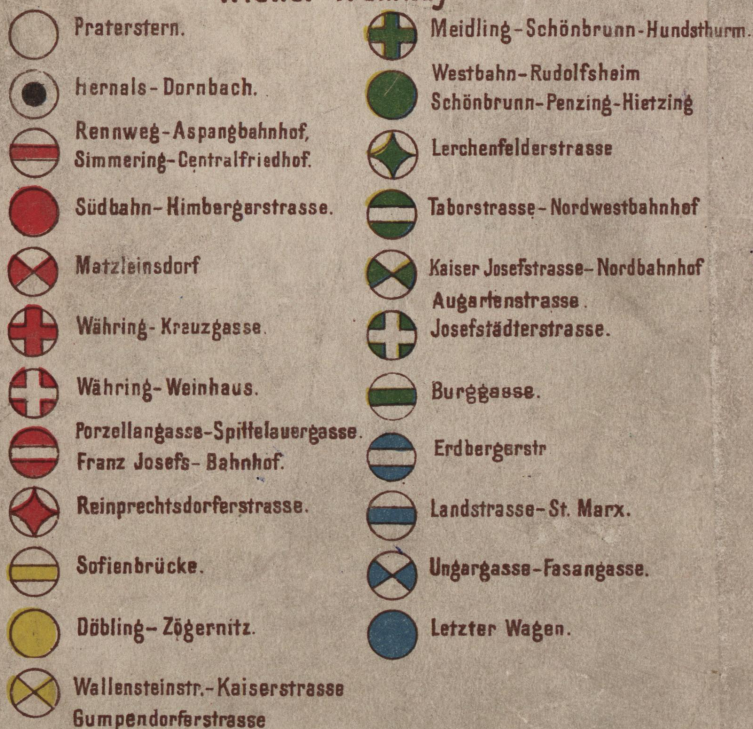 Praterstern.
Hernals-Dornbach.
Rennweg-Aspangbahnhof,
Simmering-Centralfriedhof.
Südbahn-Himbergerstrasse.
Matzleinsdorf
Währing-Kreuzgasse.
Währing-Weinhaus.
Porzellangasse-Spittelauergasse.
Franz Josefs-Bahnhof.
Reinprechtsdorferstrasse.
Sofienbrücke.
Döbling-Zögernitz.
Wallensteinstr.-Kaiserstrasse
Gumpendorferstrasse
Meidling-Schönbrunn-Hundsthurm.
Westbahn-Rudolfsheim
Schönbrunn-Penzing-Hietzing
Lerchenfelderstrasse
Taborstrasse-Nordwestbahnhof
Kaiser Josefstrasse-Nordbahnhof
Augartenstrasse.
Josefstädterstrasse.
Burggasse.
Erdbergerstr
Landstrasse-St. Marx.
Ungargasse-Fasangasse.
Letzter Wagen.